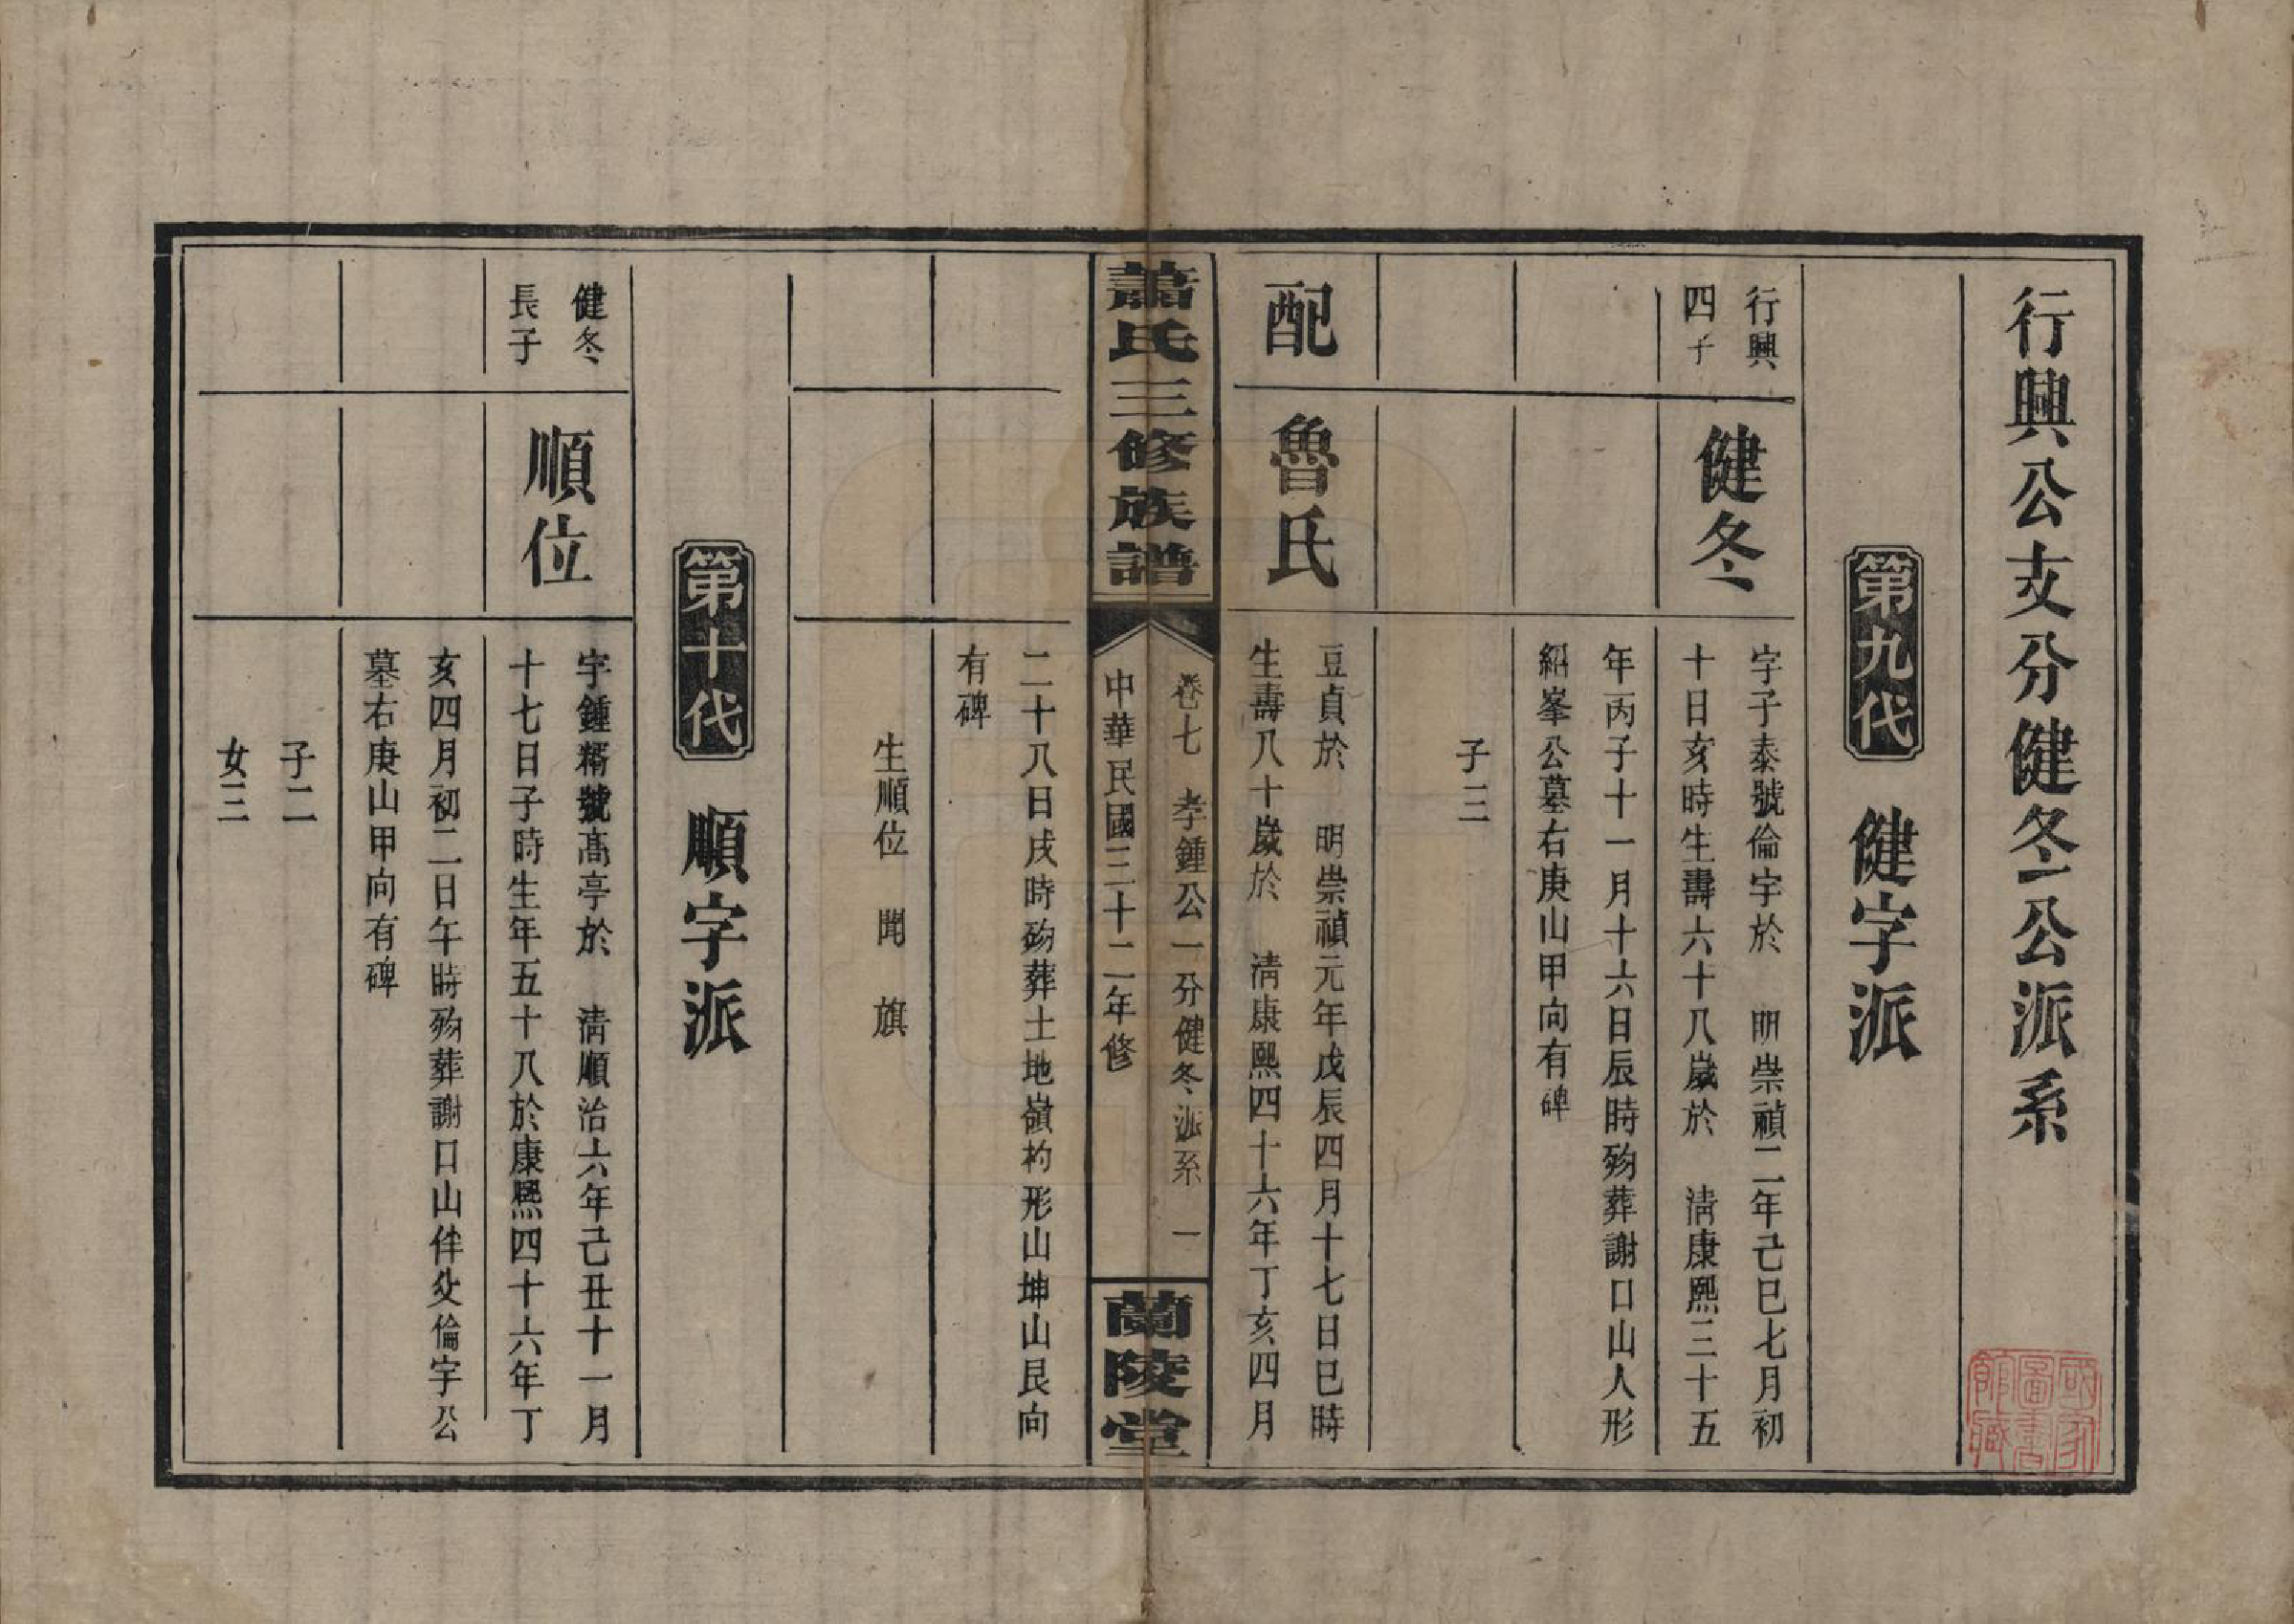 行興公支分健冬公派系
第九代　健字派
行興
四子
健冬
字子泰號倫宇於　明崇禎二年己巳七月初
十日亥時生壽六十八歲於　清康熙三十五
年丙子十一月十六日辰時歿葬謝口山人形
紹峯公墓右庚山甲向有碑
子三
配
魯氏
豆貞於　明崇禎元年戊辰四月十七日巳時
生壽八十歲於　清康熙四十六年丁亥四月
蕭氏三修族譜
卷七　孝鍾公一分健冬派系　一
中華民國三十二年修
蘭陵堂
二十八日戌時歿葬土地嶺杓形山坤山艮向
有碑
生順位　聞　旗
第十代　順字派
健冬
長子
順位
字鍾糈號高亭於　清順治六年己丑十一月
十七日子時生年五十八於康熙四十六年丁
亥四月初二日午時歿葬謝口山伴父倫宇公
墓右庚山甲向有碑
子二
女三
國家圖書館藏